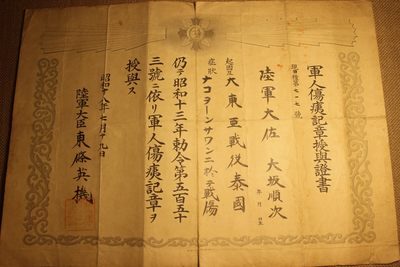 軍人傷痍記章授與證書
陸軍大佐 大坂順次
年 月 日生
起因 大東亞戰役泰國
症狀 ナコーンサワンニ於テ戰傷
仍テ昭和十三年勅令第五百五十
三號ニ依リ軍人傷痍記章ヲ
授與ス
昭和十八年七月十九日
陸軍大臣東條英機